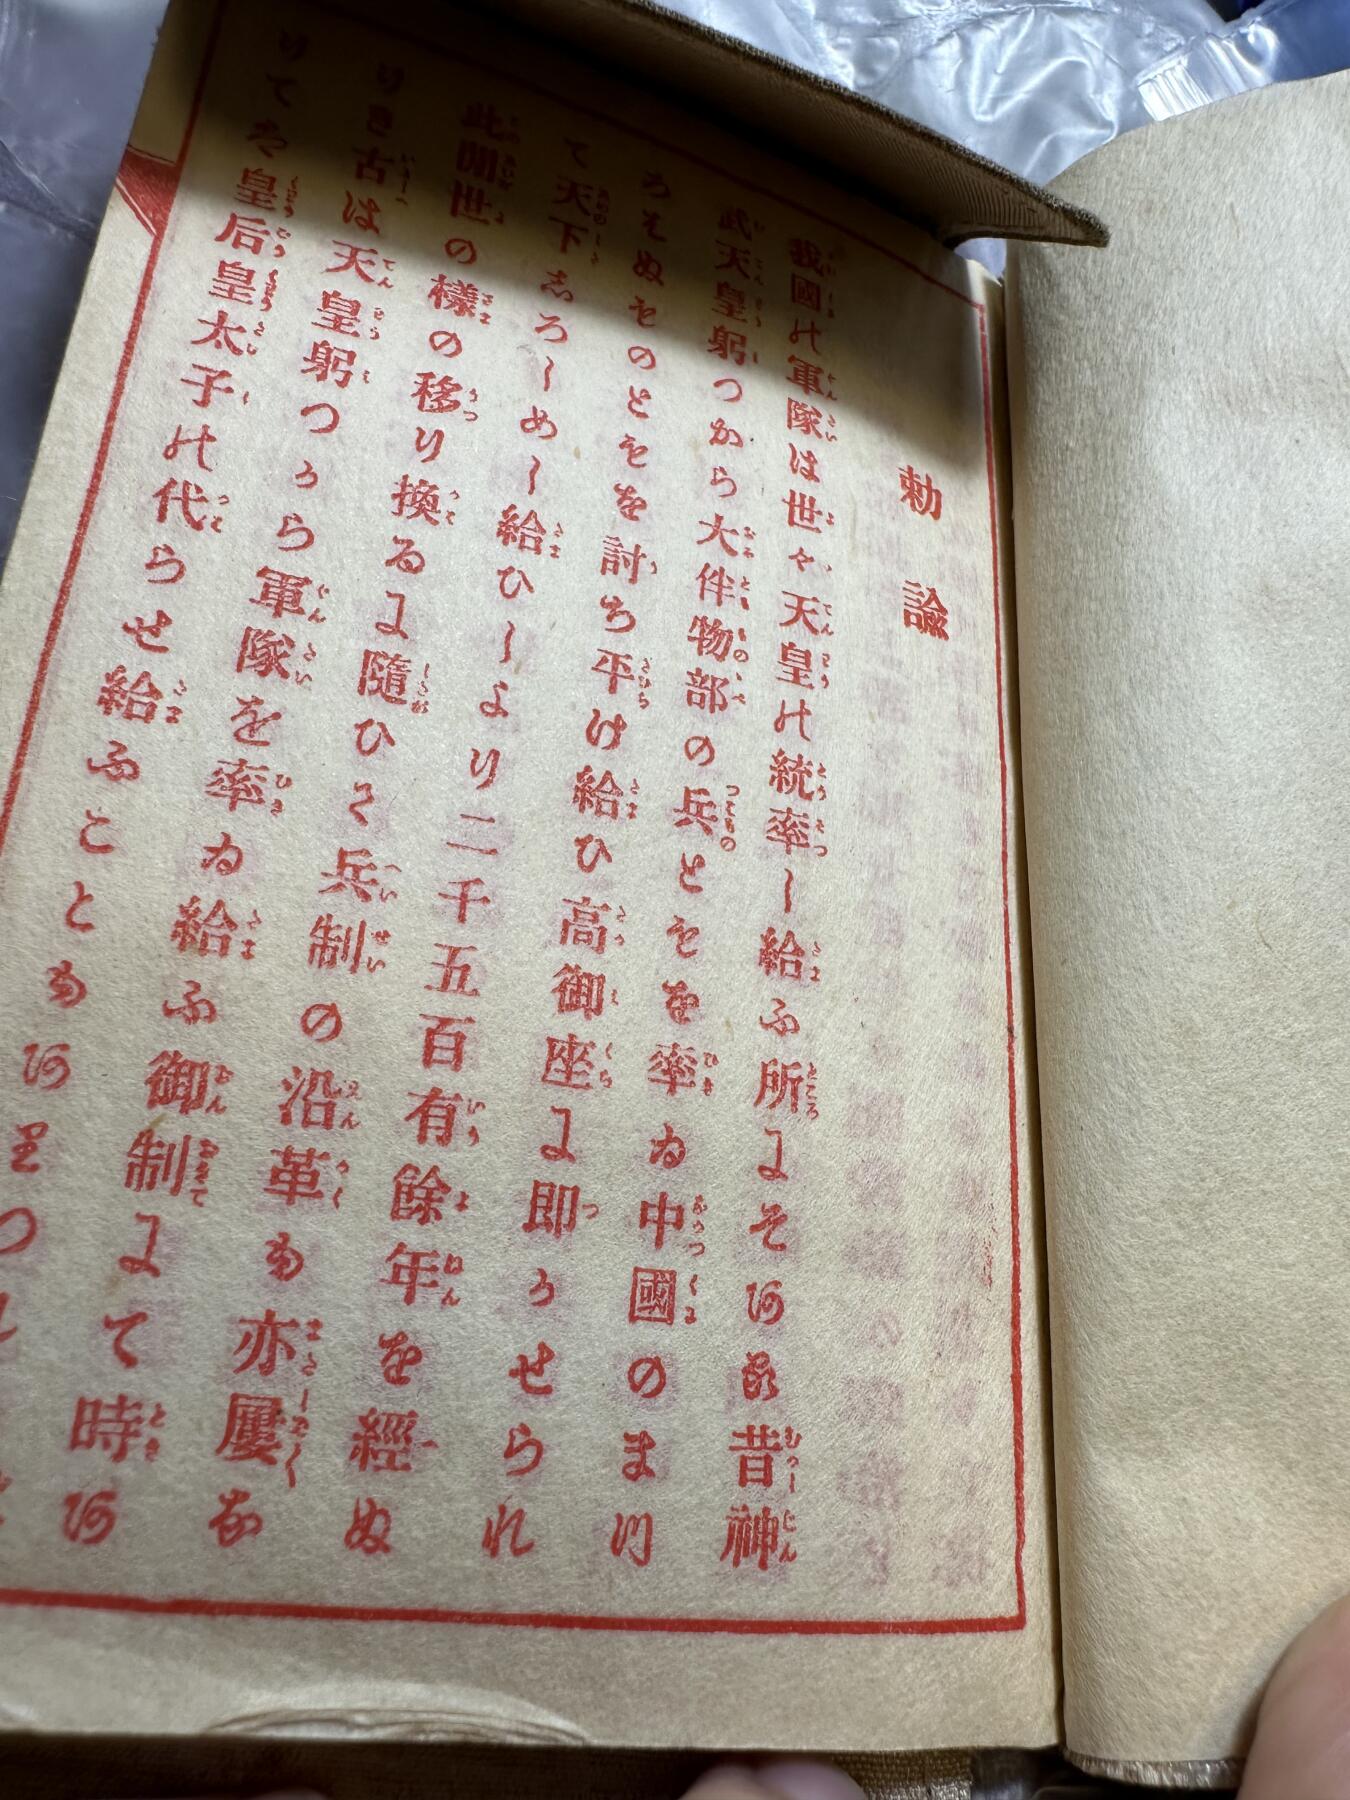 勅諭
我國の軍隊は世々天皇の統率し給ふ所にそある昔神
武天皇躬つから大伴物部の兵ともを率ゐ中國のまつ
ろはぬものともを討ち平け給ひ高御座に即かせられ
て天下しろしめし給ひしより二千五百有餘年を經ぬ
此間世の樣の移り換るに隨ひて兵制の沿革も亦屢な
りき古は天皇躬つから軍隊を率ゐ給ふ御制にて時あ
りては皇后皇太子の代らせ給ふこともありつれ